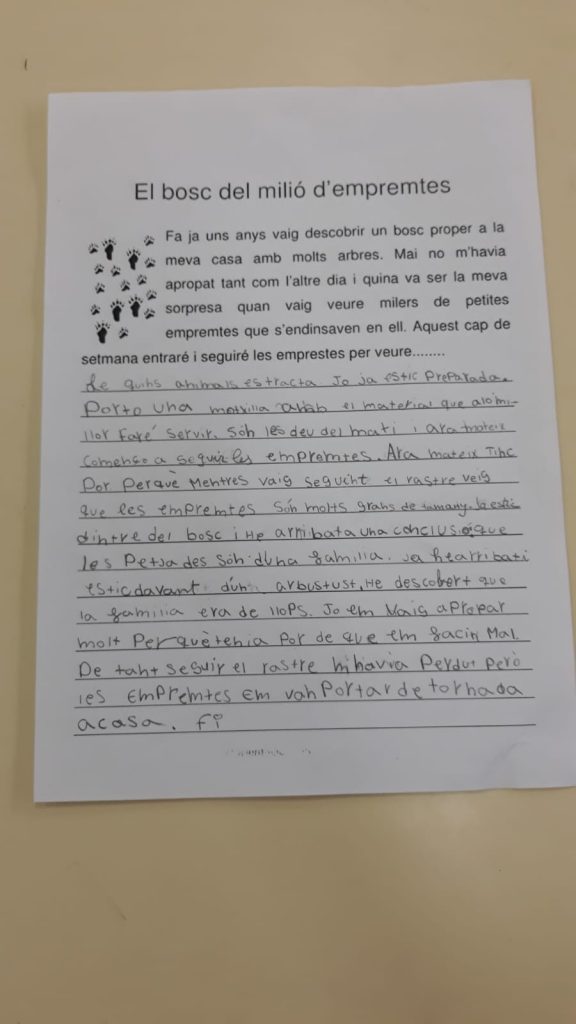 El bosc del milió d'empremtes
Fa ja uns anys vaig descobrir un bosc proper a la
meva casa amb molts arbres. Mai no m'havia
apropat tant com l'altre dia i quina va ser la meva
sorpresa quan vaig veure milers de petites
empremtes que s'endinsaven en ell. Aquest cap de
setmana entraré i seguiré les emprestes per veure........
de quins animals estracta Jo ja estic Preparada.
Porto una motxilla amb el material que alomi-
llor faré servir. Són les deu del mati i ara mateix
començo a seguir les empremtes. Ara mateix Tinc
Por perquè Mentres vaig seguint el rastre veig
que les empremtes són molts grans de tamany. Ja estic
dintre del bosc i He arribat a una conclusió que
les Petjades són d'una familia. Ja he arribat i
estic davant d'un arbustust, He descobert que
la familia era de llops. Jo em Vaig apropar
molt Perquè tenia Por de que em facin Mal.
De tant seguir el rastre hihavia Perdut però
les Empremtes Em van Portar de tornada
a casa. Fi